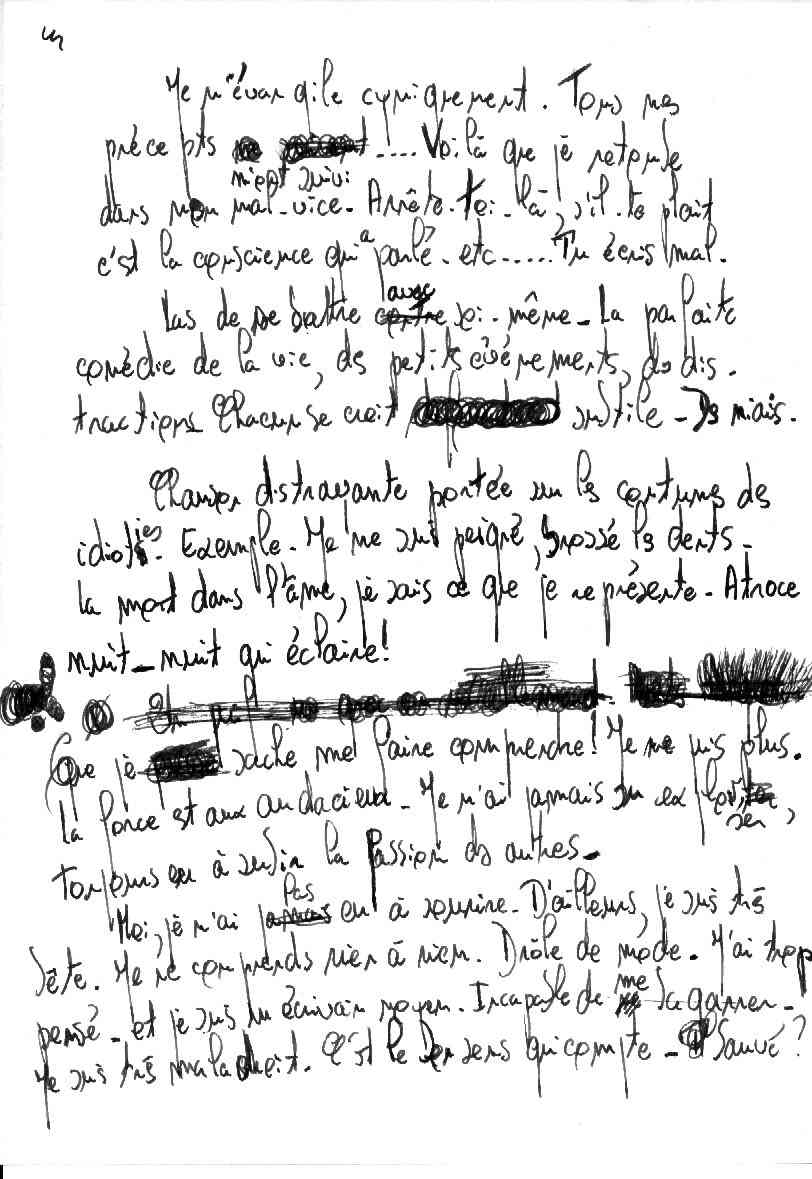 Je m'évangile cyniquement. Tous mes
préceptes .... Voilà que je retombe
m'ont suivi
dans mon mal-vice. Arrête-toi-là, s'il te plait
c'est la conscience qui a parlé. etc..... Tu écris mal.
Las de se battre avec soi-même. La parfaite
comédie de la vie, des petits événements, des dis-
tractions. Chacun se croit subtile. Ds miais.
Chanson distrayante portée sur les coutumes des
idioties. Exemple. Je me suis peigné, brossé ls dents.
La mort dans l'âme, je sais ce que je représente. Atroce
nuit-nuit qui éclaire!
Que je sache me faire comprendre! Je ne puis plus.
La force est aux audacieux. Je n'ai jamais su exploi
ser,
toujours eu à subir la passion ds autres.
Moi, je n'ai pas eu à sourire. D'ailleurs, je suis trés
bête. Je ne comprends rien à rien. Drôle de mode. J'ai trop
pensé. et je suis un écrivain moyen. Incapable de me bagarrer.
Je suis trés maladroit. C'est le bon sens qui compte. Sauvé?